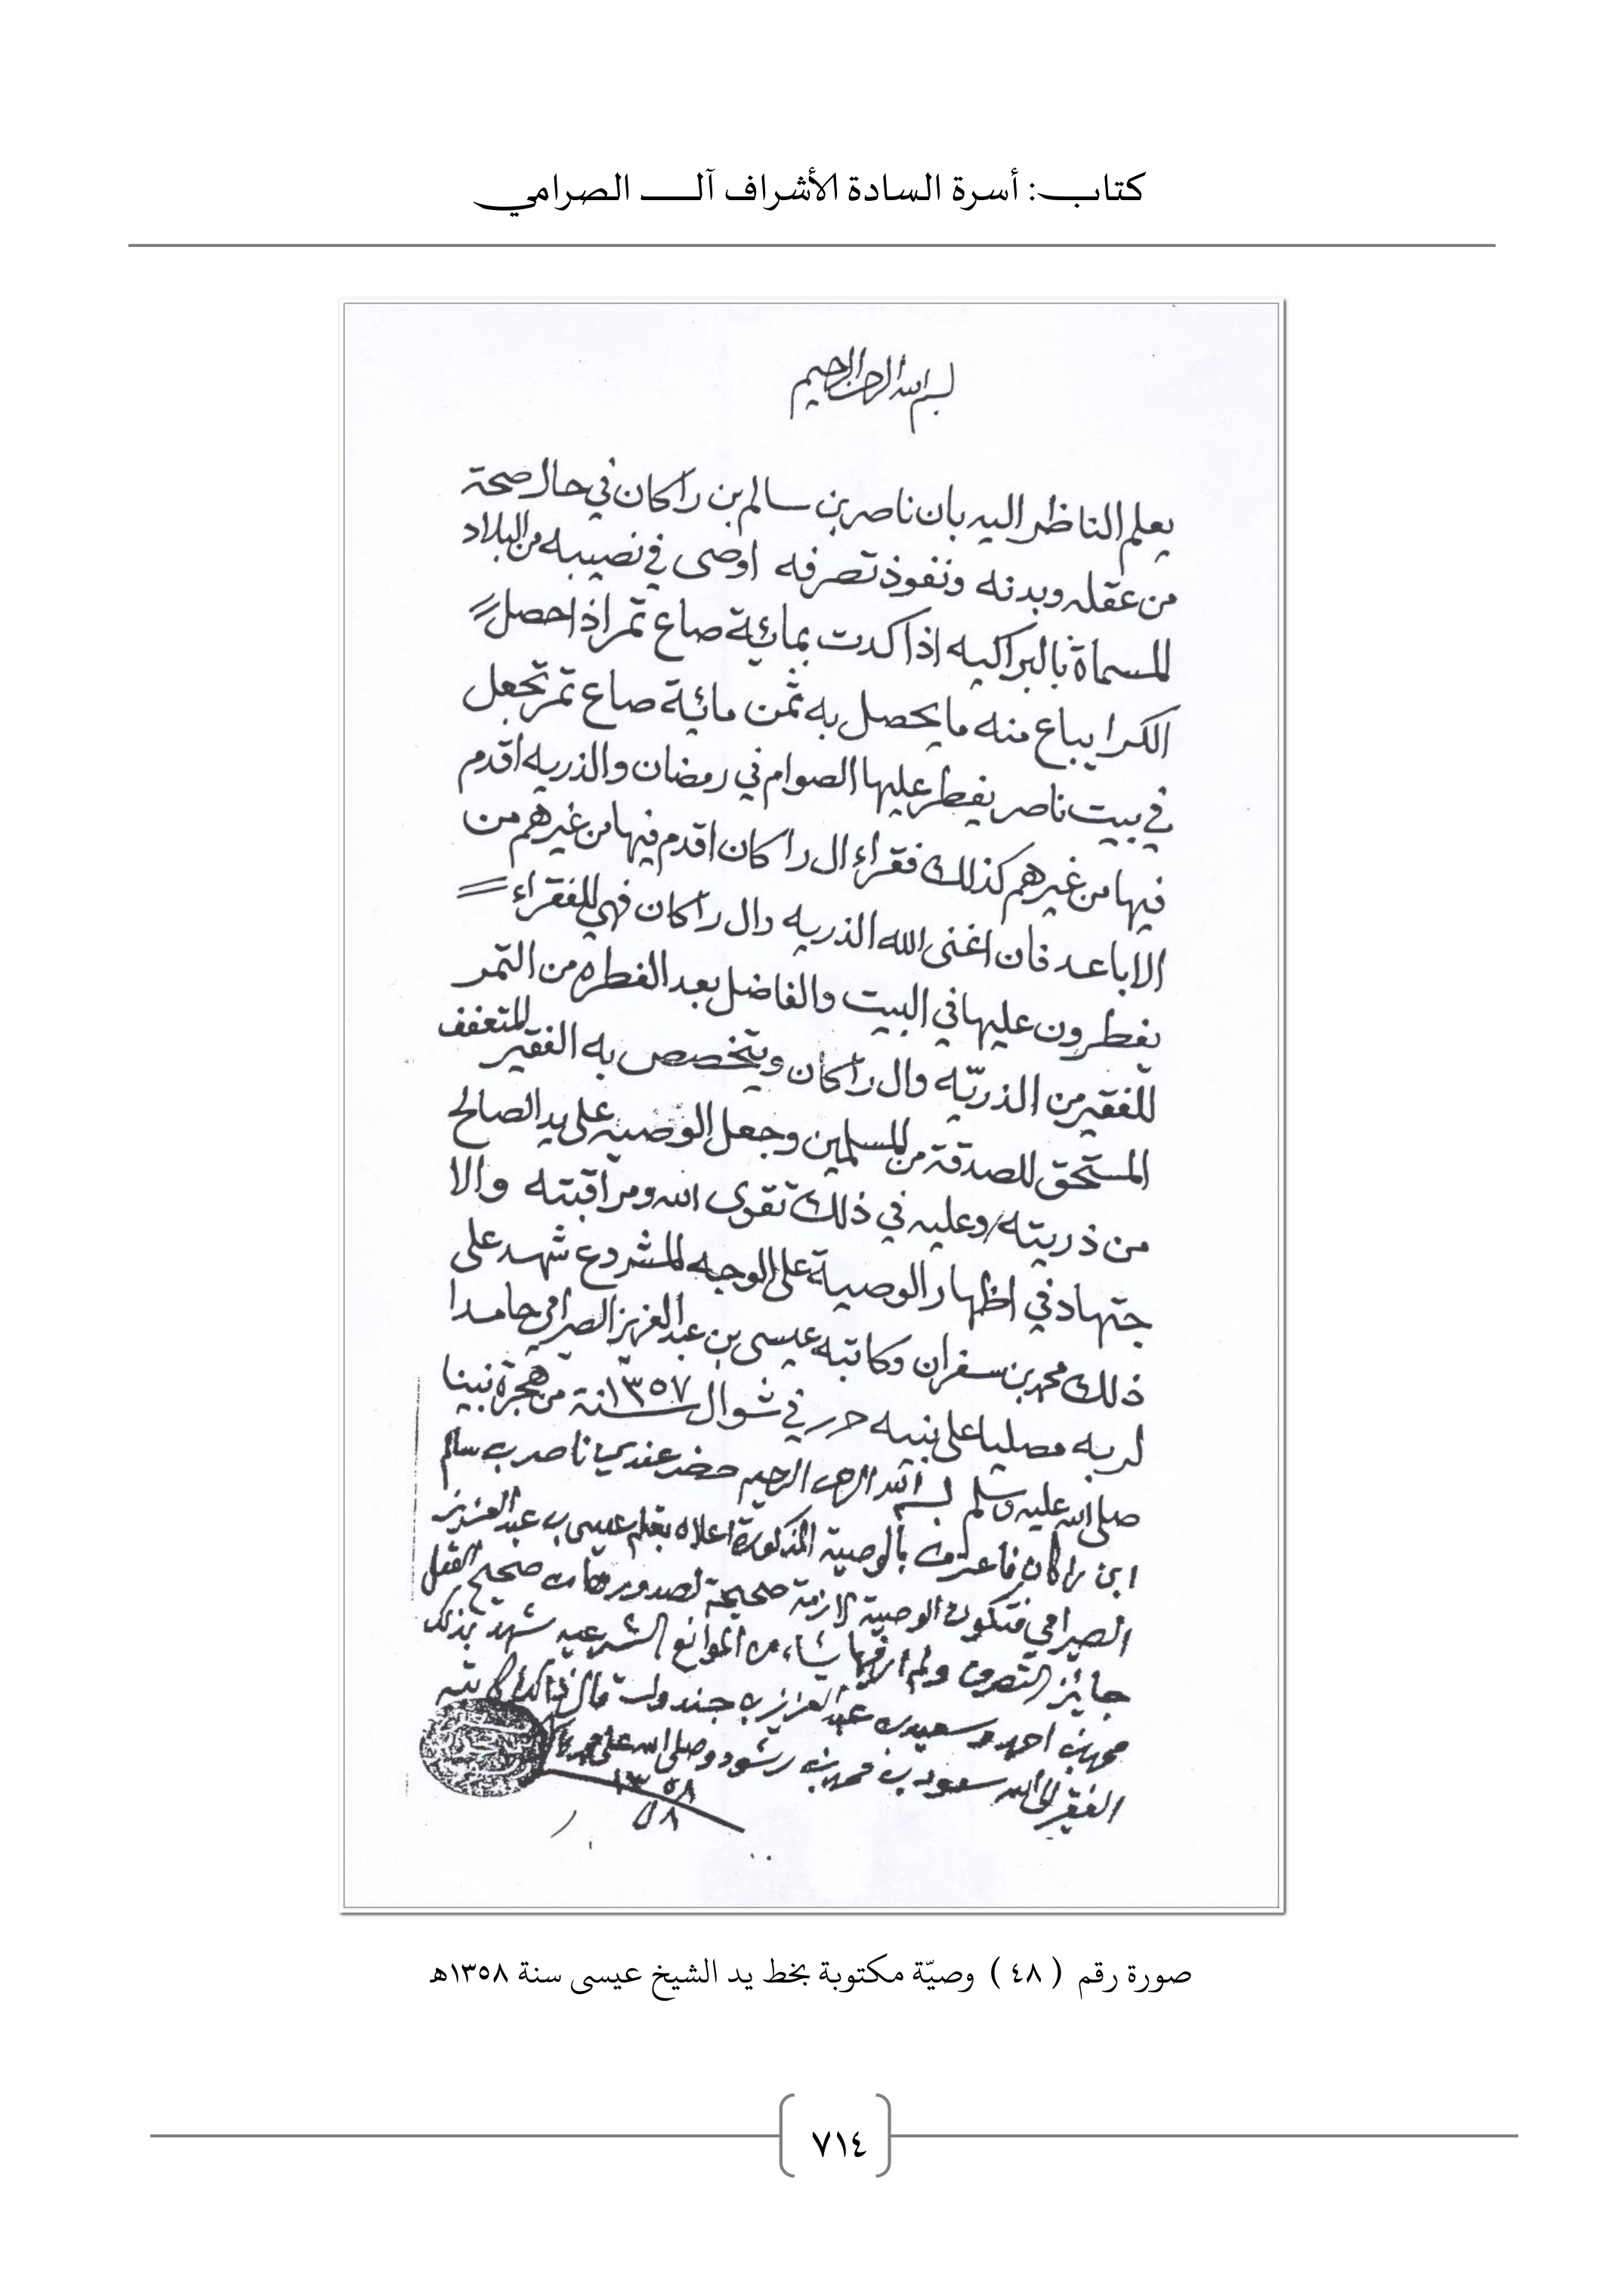 كتاب: أسرة السادة الأشراف آل الصرامي
بسم الله الرحمن الرحيم
يعلم الناظر اليه بان ناصر بن سالم بن راكان في حال صحة
من عقله وبدنه ونفوذ تصرفه اوصى في نصيبه من البلاد
المسماة بالبراكيه اذا كدت بمائية صاع تمر اذا حصل
الكرا يباع منه ما يحصل به ثمن مائية صاع تمر تجعل
في بيت ناصر يفطر عليها الصوام في رمضان والذريه اقدم
فيها من غيرهم كذلك فقراء ال راكان اقدم فيها من غيرهم من
الاباعد فان اغنى الله الذريه وال راكان فهي للفقراء
يفطرون عليها في البيت والفاضل بعد الفطره من التمر
للفقير من الذريّه وال راكان ويتخصص به الفقير المتعفف
المستحق للصدقة من المسلمين وجعل الوصيه على يد الصالح
من ذريته وعليه في ذلك تقوى الله ومراقبته والا
جتهاد في اظهار الوصية على الوجه المشروع شهد على
ذلك محمد بن سفران وكاتبه عيسى بن عبد العزيز الصرامي حامدا
لربه مصليا على نبيه حرر في شوال سنة ١٣٥٧ من هجرة نبينا
صلى الله عليه وسلم بسم الله الرحمن الرحيم حضر عندي ناصر بن سالم
ابن راكان فاعترف بالوصية المذكورة اعلاه بقلم عيسى بن عبد العزيز
الصرامي فتكون الوصية لازمة صحيحة لصدورها من صحيح العقل
جايز التصرف ولم ار فيها شياء من الموانع الشرعيه شهد بذلك
محمد بن احمد وسعيد بن عبد العزيز بن جندول قال ذلك كاتبه
الفقير الى الله سعود بن محمد بن رشود وصلى الله على محمد
١٣٥٨
٥٨
صورة رقم ( ٤٨ ) وصيّة مكتوبة بخط يد الشيخ عيسى سنة ١٣٥٨هـ
٧١٤